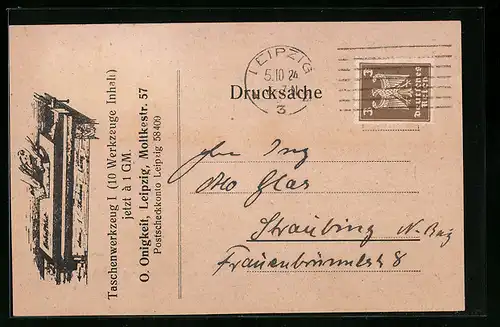 LEIPZIG
5.10 24
3
Drucksache
3 3
Deutsches
Reich
Taschenwerkzeug I (10 Werkzeuge Inhalt)
jetzt à 1 GM.
O. Onigkeit, Leipzig, Moltkestr. 57
Postscheckkonto Leipzig 58409
Herrn Ing
Otto Glas
Straubing N. Bay
Frauenbrünnlstr 8